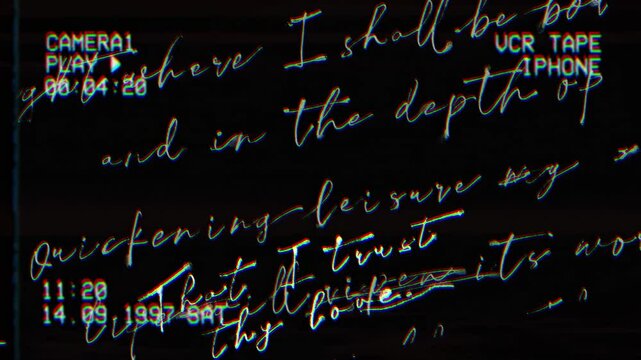 CAMERA1
PLAY
00:04:20
VCR TAPE
IPHONE
where I shall be
and in the depth of
Quickening leisure my
That I trust
its
thy love.
11:20
14.09.1997 SAT